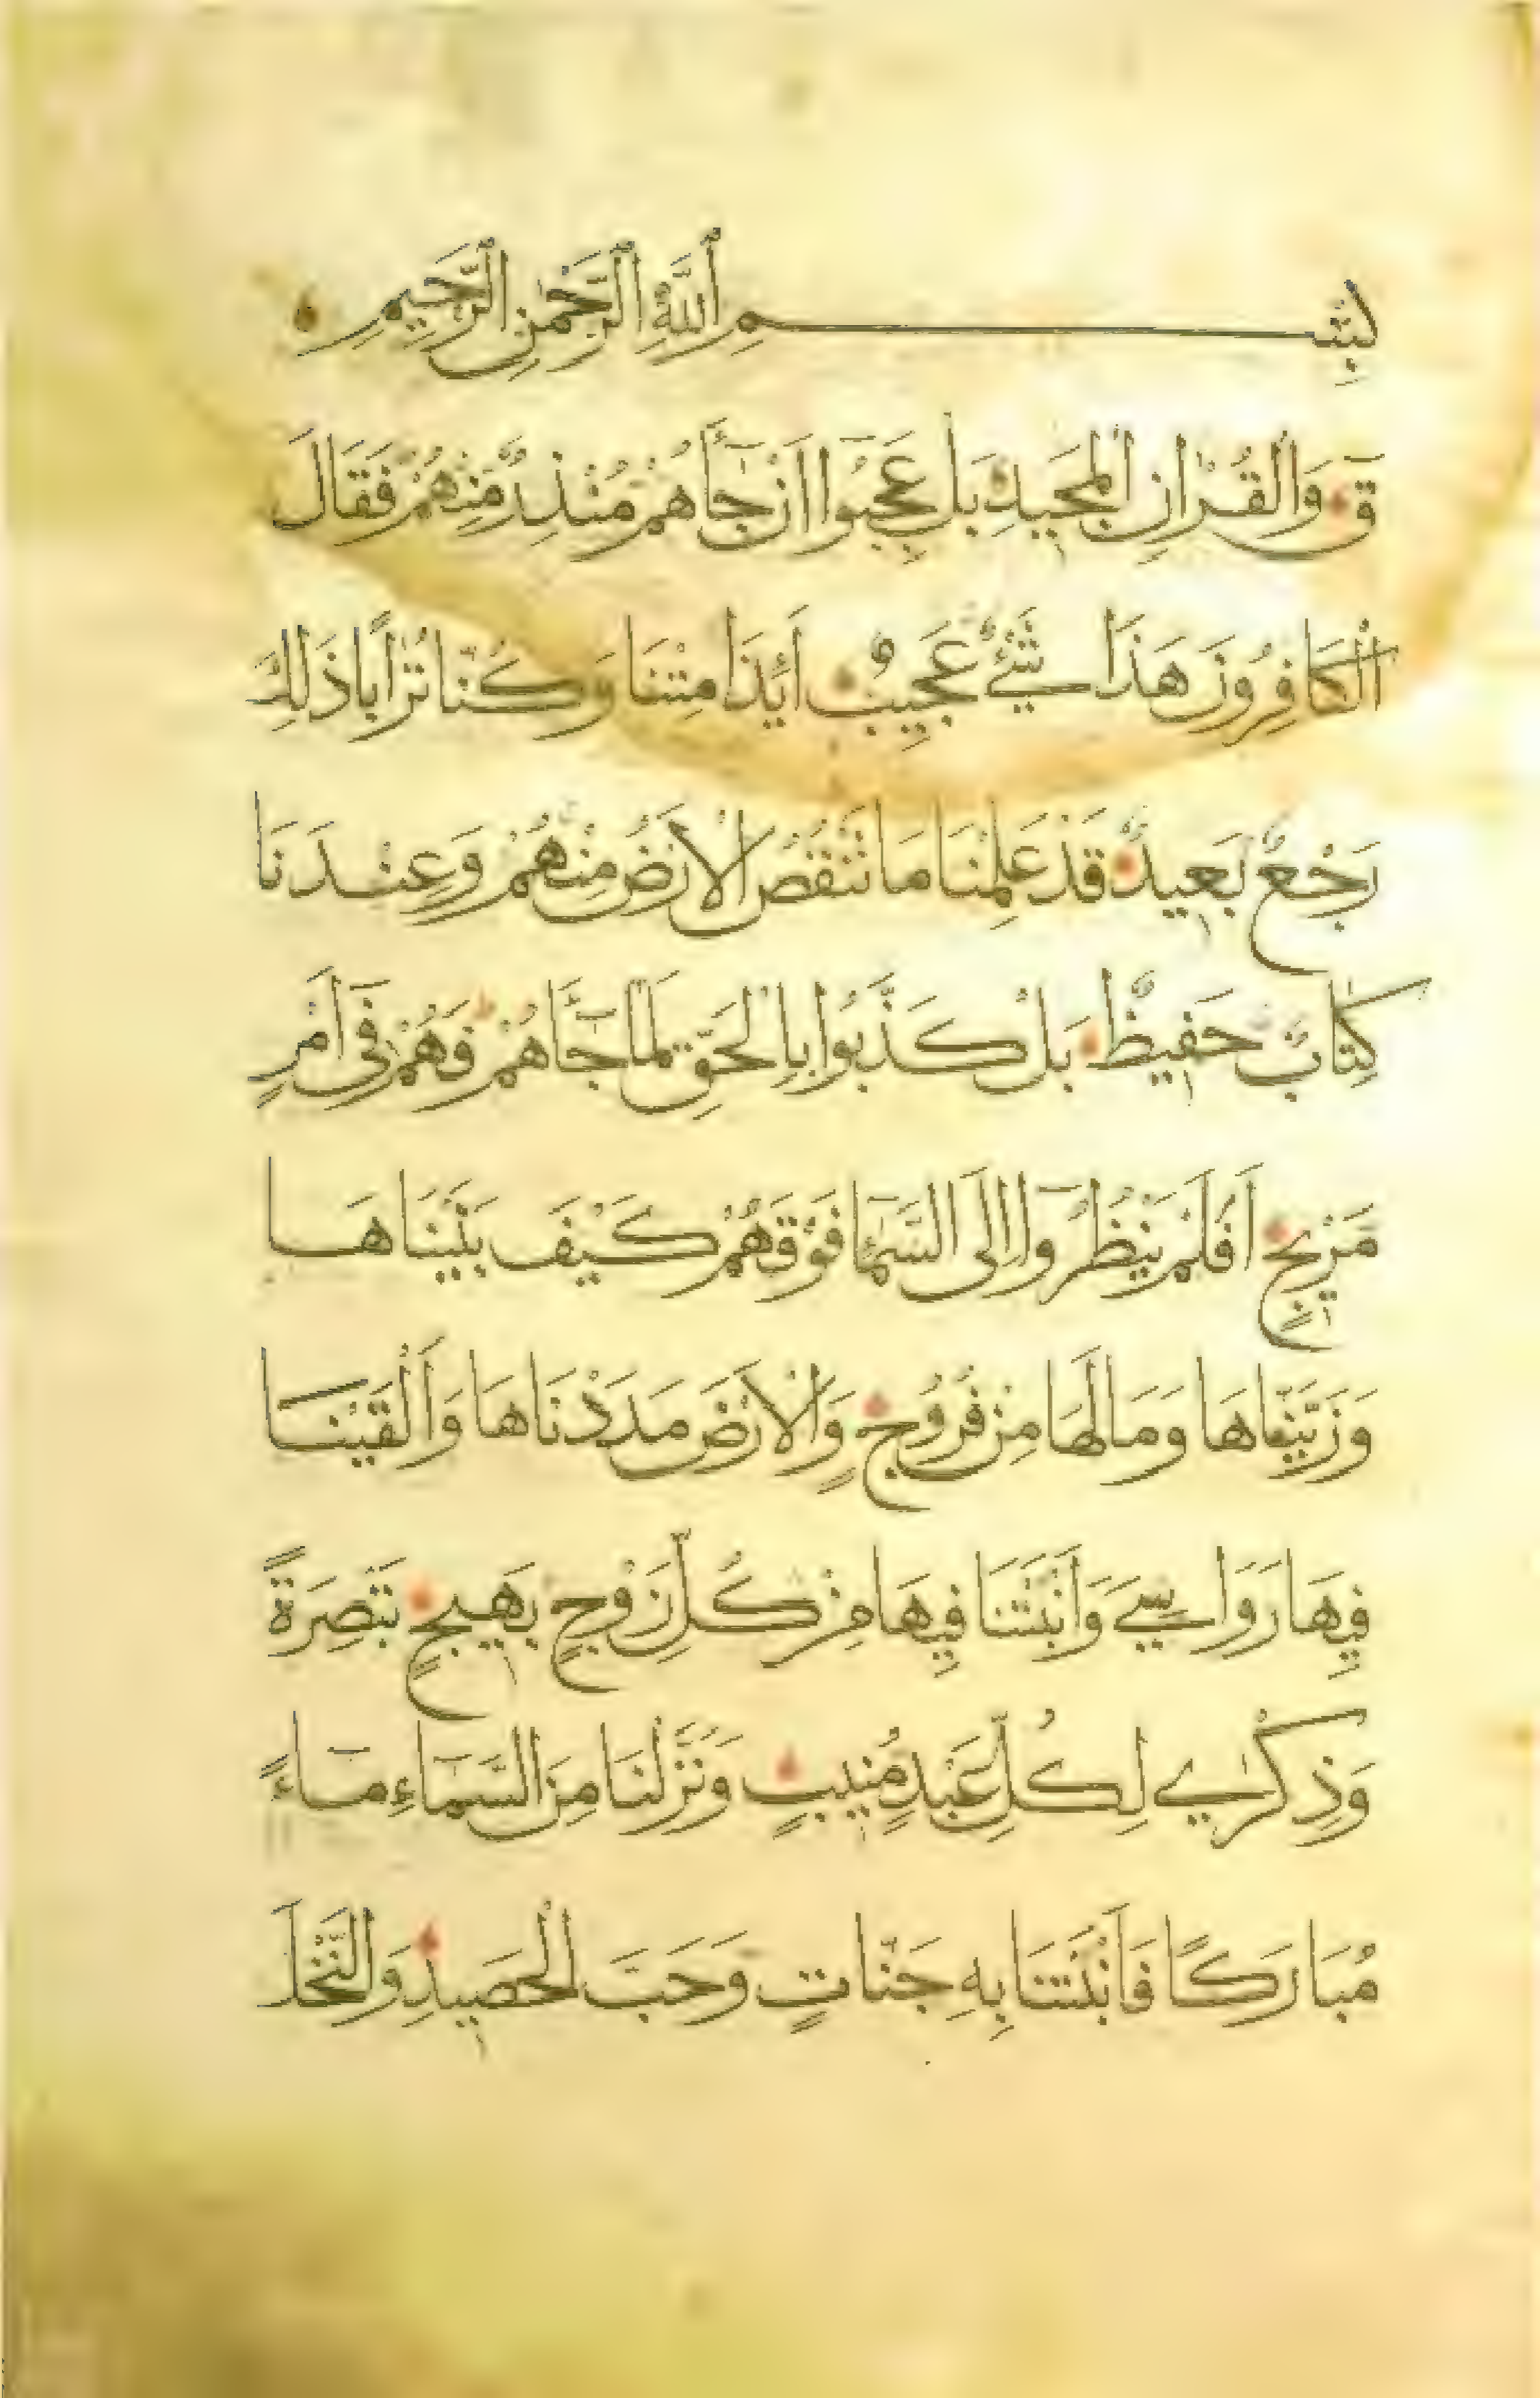 بِسْمِ ٱللَّهِ ٱلرَّحْمٰنِ ٱلرَّحِيمِ
قٓ وَالْقُرْاٰنِ الْمَجِيدِ بَلْ عَجِبُوٓا اَنْ جَآءَهُمْ مُنْذِرٌ مِنْهُمْ فَقَالَ
الْكَافِرُونَ هَذَا شَيْءٌ عَجِيبٌ اَئِذَا مِتْنَا وَكُنَّا تُرَابًا ذَلِكَ
رَجْعٌ بَعِيدٌ قَدْ عَلِمْنَا مَا تَنْقُصُ الْاَرْضُ مِنْهُمْ وَعِنْدَنَا
كِتَابٌ حَفِيظٌ بَلْ كَذَّبُوا بِالْحَقِّ لَمَّا جَآءَهُمْ فَهُمْ فِىٓ اَمْرٍ
مَرِيجٍ اَفَلَمْ يَنْظُرُوٓا اِلَى السَّمَآءِ فَوْقَهُمْ كَيْفَ بَنَيْنَاهَا
وَزَيَّنَّاهَا وَمَا لَهَا مِنْ فُرُوجٍ وَالْاَرْضَ مَدَدْنَاهَا وَاَلْقَيْنَا
فِيهَا رَوَاسِيَ وَاَنْبَتْنَا فِيهَا مِنْ كُلِّ زَوْجٍ بَهِيجٍ تَبْصِرَةً
وَذِكْرٰي لِكُلِّ عَبْدٍ مُنِيبٍ وَنَزَّلْنَا مِنَ السَّمَآءِ مَآءً
مُبَارَكًا فَاَنْبَتْنَا بِهِ جَنَّاتٍ وَحَبَّ الْحَصِيدِ وَالنَّخْلَ